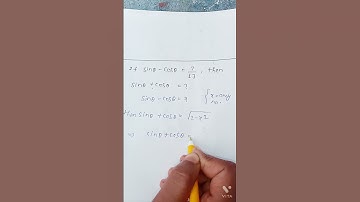 If sinθ - cosθ = 7/13, then
sinθ + cosθ = ?
sinθ - cosθ = x
then sinθ + cosθ = √2-x²
⇒ sinθ + cosθ =
VITA